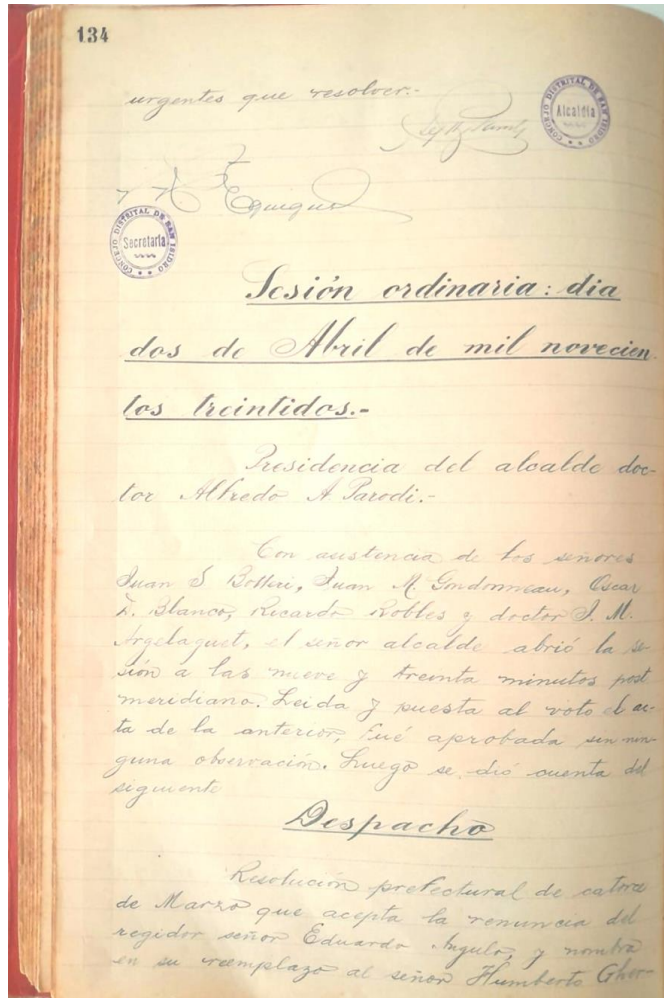 134
urgentes que resolver.-
CONCEJO DISTRITAL DE SAN ISIDRO
Alcaldía
CONCEJO DISTRITAL DE SAN ISIDRO
Secretaría
Sesión ordinaria: dia
dos de Abril de mil novecien
tos treintidos.-
Presidencia del alcalde doc-
tor Alfredo A Parodi.-
Con asistencia de los señores
Juan S Botteri, Juan M. Gondonneau, Oscar
Z. Blanco, Ricardo Robles y doctor J. M.
Argelaguet, el señor alcalde abrió la se-
sión a las nueve y treinta minutos post
meridiano. Leida y puesta al voto el ac-
ta de la anterior, fué aprobada sin nin-
guna observación. Luego se dió cuenta del
siguiente
Despacho
Resolución prefectural de catorce
de Marzo que acepta la renuncia del
regidor señor Eduardo Angulo, y nombra
en su reemplazo al señor Humberto Gher-